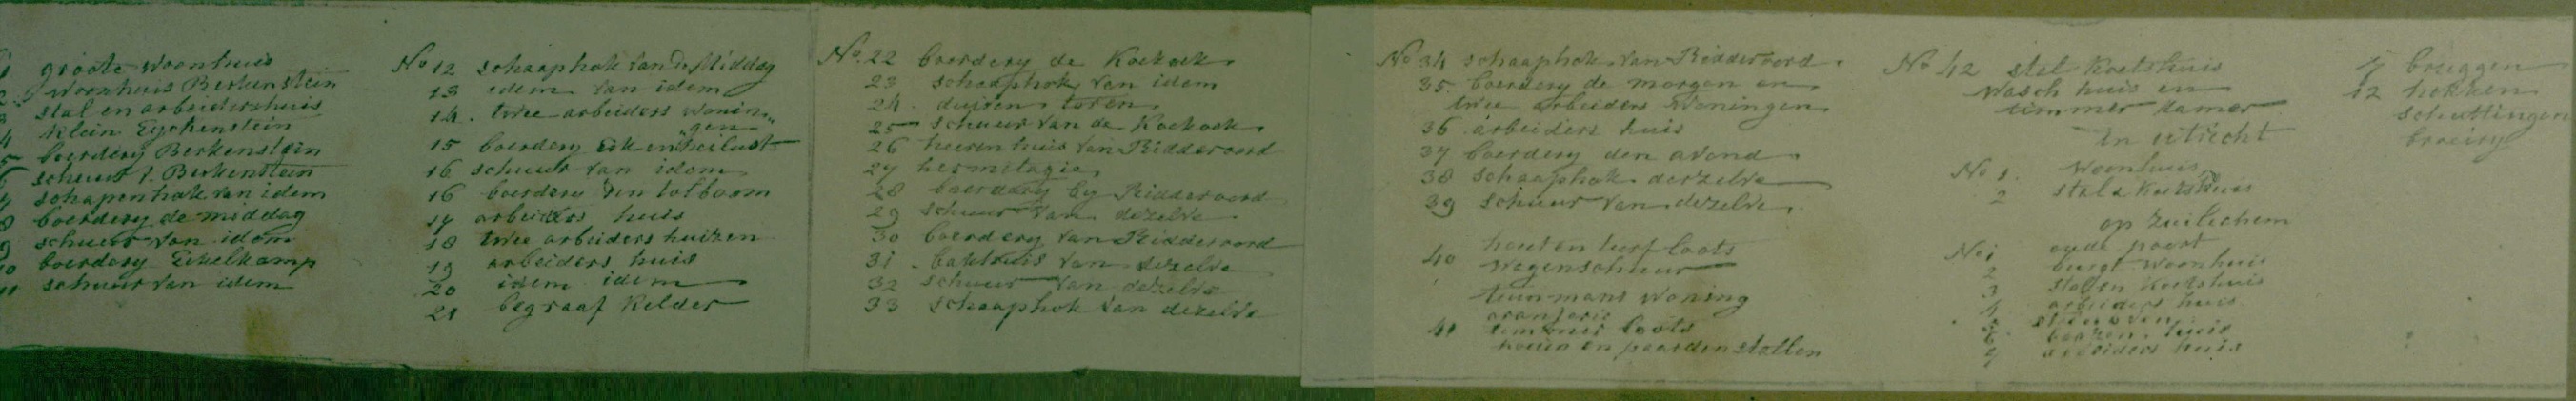 1 groote woonhuis
2 woonhuis Berkenstein
3 stal en arbeidershuis
4 klein Eyckenstein
5 boerdery Berkenstein
6 schuur v. Berkenstein
7 schapenhok van idem
8 boerdery de middag
9 schuur van idem
10 boerdery Eekelkamp
11 schuur van idem
No 12 schaaphok van de Middag
13 idem van idem
14. twee arbeiders wonin„
„gen
15 boerdery Eik en heilust
16 schuur van idem
16 boerdery den tolboom
17 arbeiders huis
18 twee arbeiders huizen
19 arbeiders huis
20 idem idem
21 begraaf kelder
No. 22 boerdery de Koekoek
23 schaaphok van idem
24. duiven toren
25 schuur van de Koekoek
26 heerenhuis van Ridderoord
27 hermitagie
28 boerdery by Ridderoord
29 schuur van dezelve
30 boerdery van Ridderoord
31. bakhuis van dezelve
32 schuur van dezelve
33 schaaphok van dezelve
No 34 schaaphok van Ridderoord
35. boerdery de morgen en
twee arbeiders woningen
36 arbeiders huis
37 boerdery den avond
38 schaaphok derzelve
39 schuur van dezelve
hout en turf loots
40 wagenschuur
tuinmans woning
oranjerie
41 timmer loots
koeien en paardenstallen
No 42 stal koetshuis
wasch huis en
timmer kamer
in utrecht
No 1. woonhuis
2 stal & koetshuis
op Zuilichem
No 1 oude poort
2 burgt woonhuis
3 stal en koetshuis
4 arbeiders huis
5 steenoven
6. baazen huis
7 arbeiders huis
7 bruggen
12 hekken
schuttingen
broeiryl